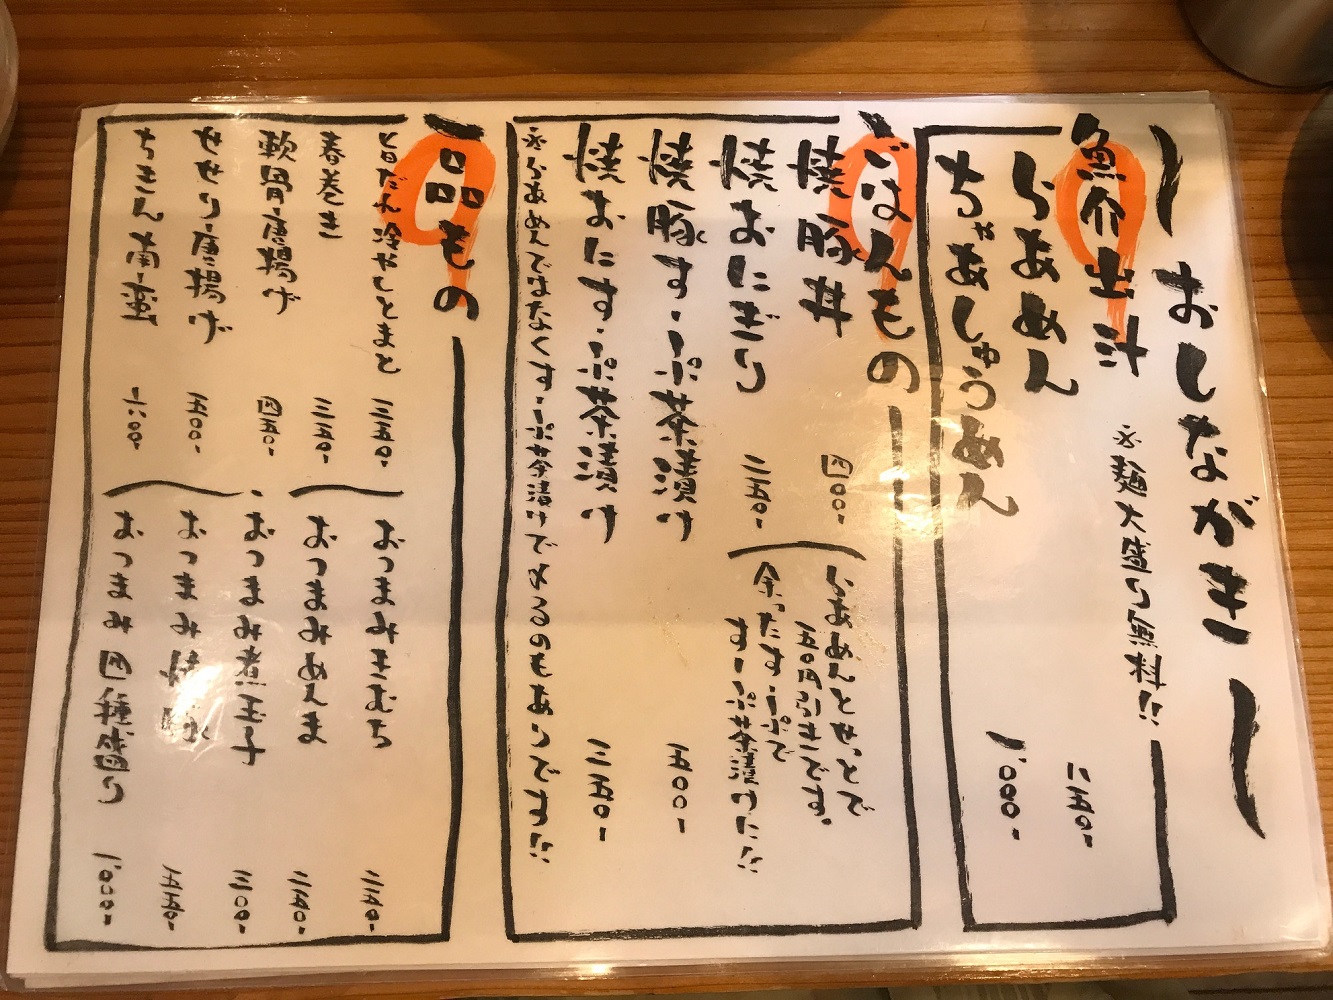 おしながき
魚介出汁 ※麺大盛り無料!!
らあめん 八五〇-
ちゃあしゅうめん 一、〇〇〇-
ごはんもの
焼豚丼 四〇〇-
焼おにぎり 二五〇-
らあめんとせっとで
五〇円引きです。
余ったすーぷで
すーぷ茶漬けに!!
焼豚すーぷ茶漬け 五〇〇-
焼おにすーぷ茶漬け 三五〇-
※らあめんではなくすーぷ茶漬けで〆るのもありです!!
一品もの
旨だれ冷やしとまと 三五〇-
春巻き 三五〇-
軟骨唐揚げ 四五〇-
せせり唐揚げ 五〇〇-
ちきん南蛮 六〇〇-
おつまみきむち 二五〇-
おつまみめんま 二五〇-
おつまみ煮玉子 三〇〇-
おつまみ焼豚 五五〇-
おつまみ四種盛り 一、〇〇〇-